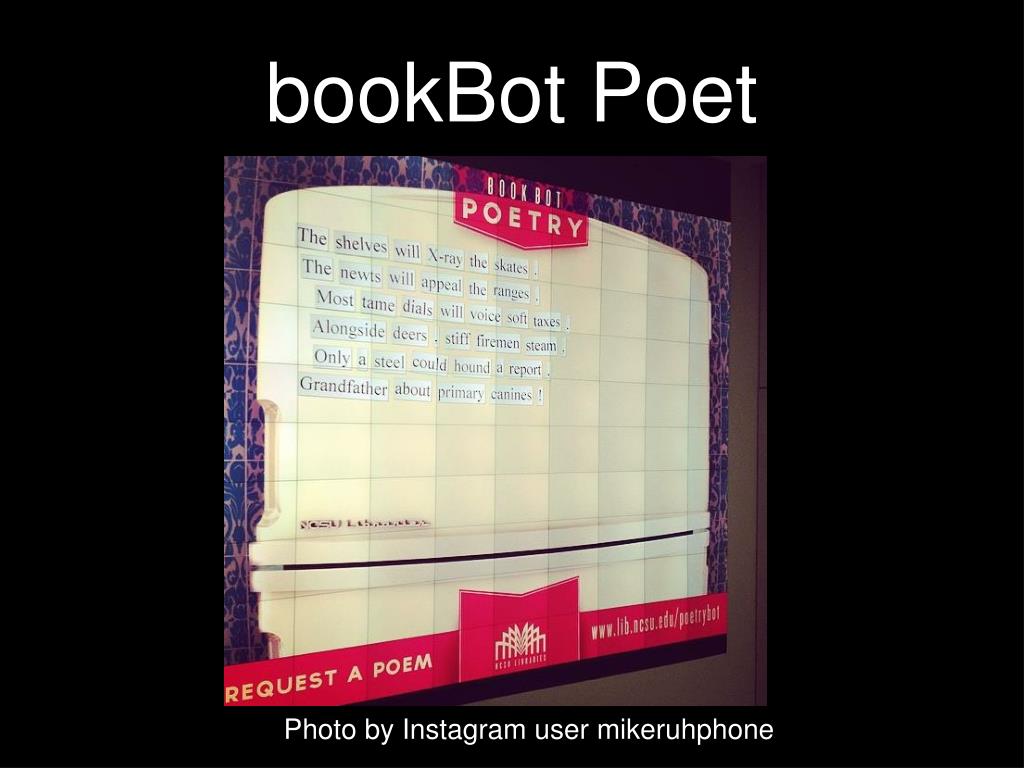 bookBot Poet
BOOK BOT
POETRY
The shelves will X-ray the skates .
The newts will appeal the ranges .
Most tame dials will voice soft taxes .
Alongside deers , stiff firemen steam .
Only a steel could hound a report .
Grandfather about primary canines !
NCSU Libraries
www.lib.ncsu.edu/poetrybot
NCSU LIBRARIES
REQUEST A POEM
Photo by Instagram user mikeruhphone